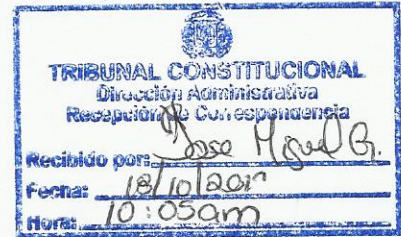 TRIBUNAL CONSTITUCIONAL
Dirección Administrativa
Recepción de Correspondencia
Recibido por: Jose Miguel G.
Fecha: 18/10/201
Hora: 10:05am